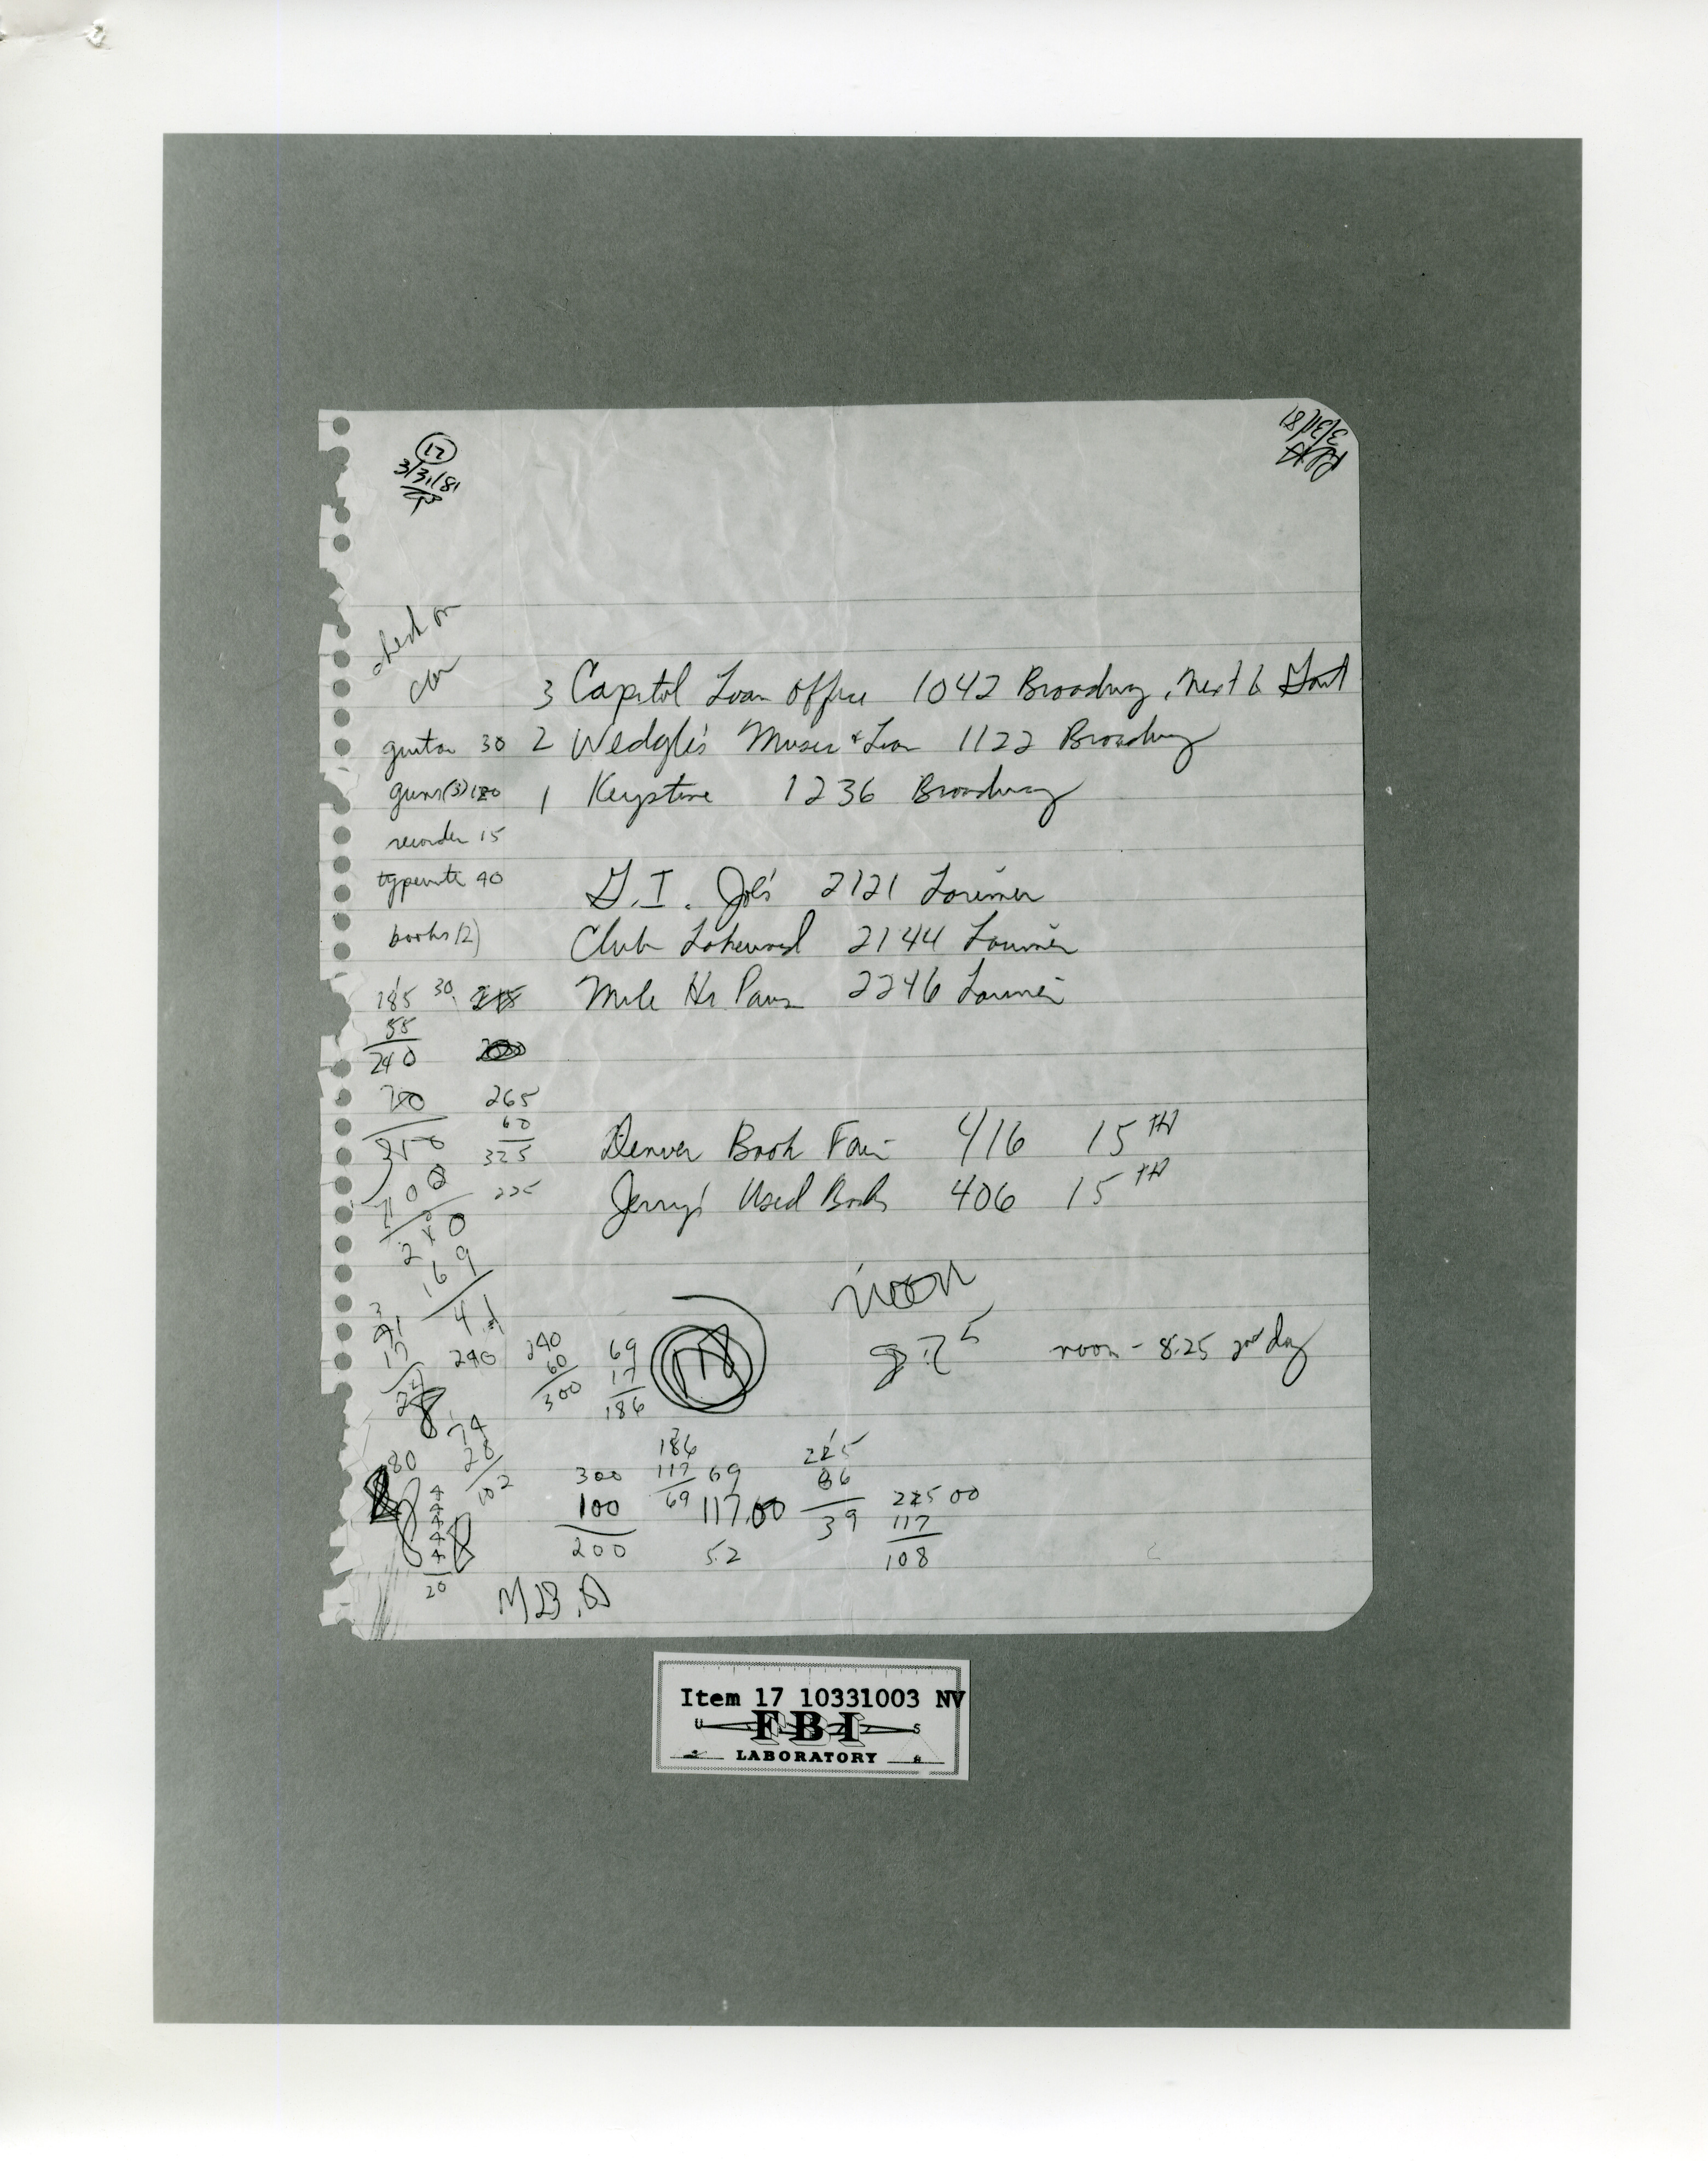 17
3/31/81
3/31/81
check on
car
3 Capitol Loan Office 1042 Broadway, next to
guitar 30 2 Wedgle's Music & Loan 1122 Broadway
guns(3) 120 1 Keystone 1236 Broadway
recorder 15
typewrite 40 G.I. Joe's 2121 Larimer
books(2) Club Lakewood 2144 Larimer
185 30 215 Mile Hi Pawn 2246 Larimer
55
240
265
60
325
225
Denver Book Fair 416 15TH
Jerry's Used Books 406 15TH
100
240
169
noon
noon - 8:25 2nd day
17
240
240
60
300
69
17
186
74
28
102
80
4
4
4
4
4
20
300
100
200
186
117
69
69
117.00
52
225
86
39
225 00
117
108
Item 17 10331003 NV
U S
FBI
LABORATORY